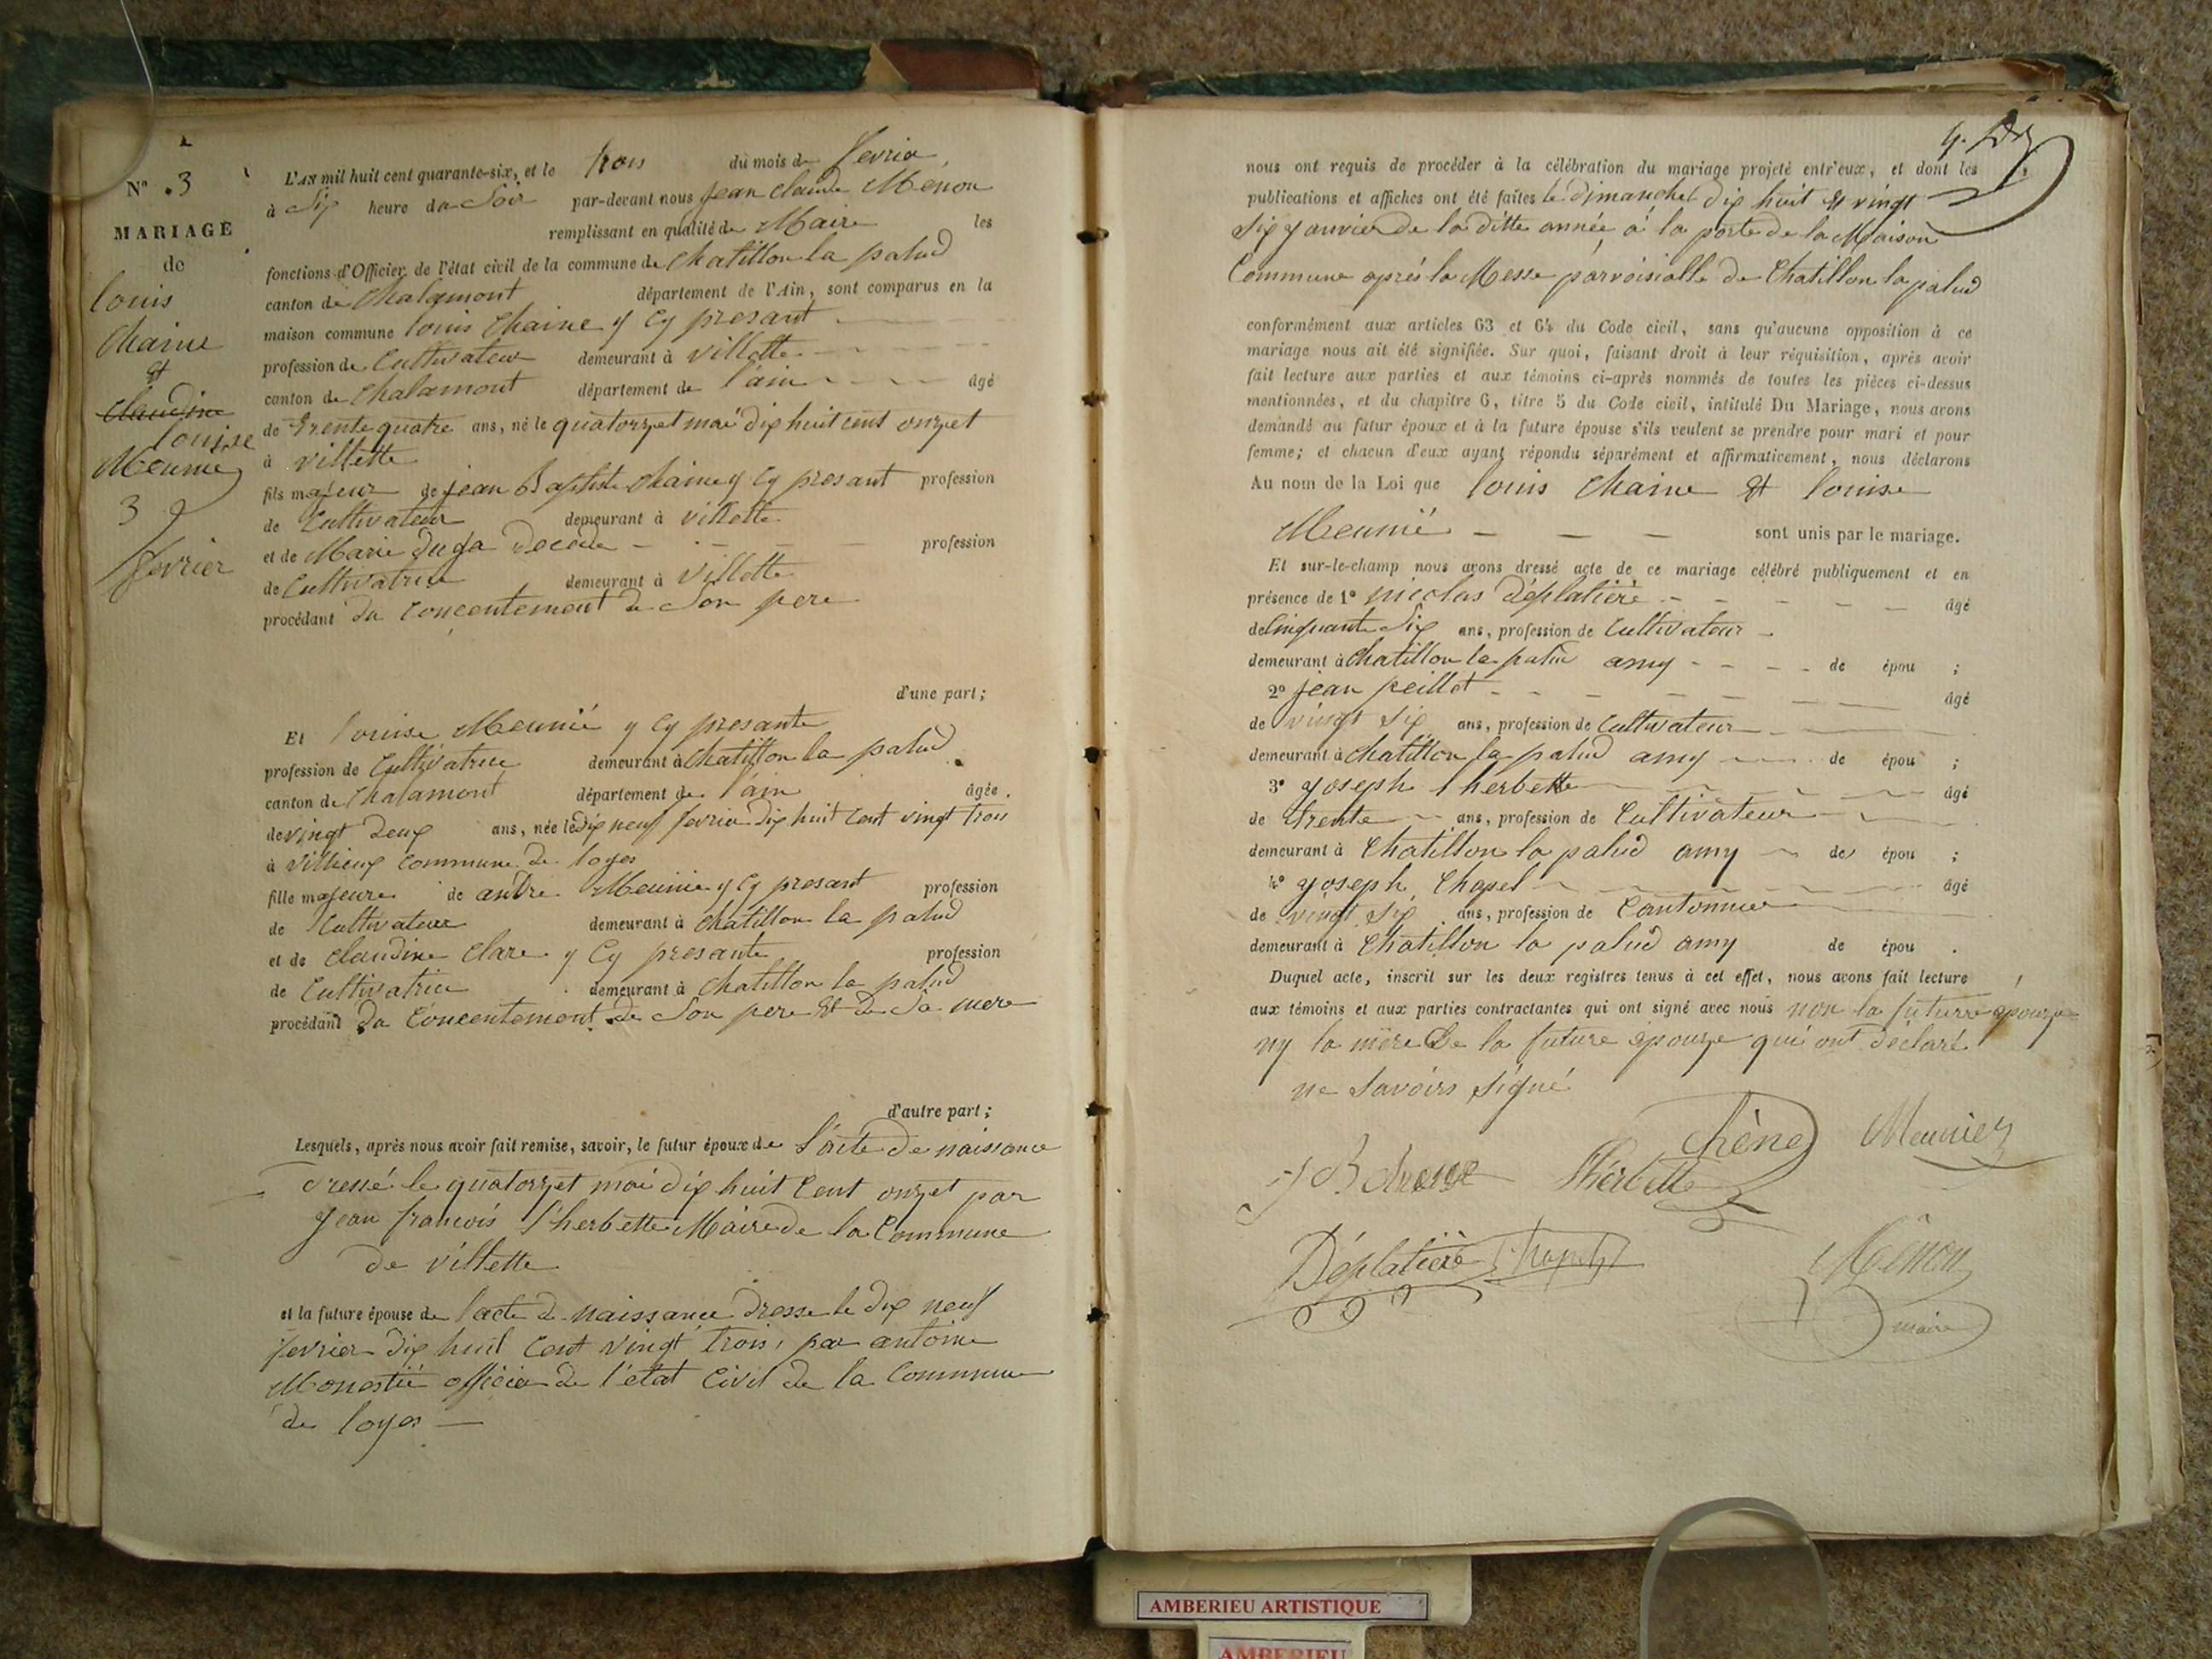 N° 3
MARIAGE
de
louis
Chaine
et
Claudine
louise
Meunie
3
fevrier
L'AN mil huit cent quarante-six, et le trois du mois de fevrier
à Six heure du Soir par-devant nous jean claude Menon
remplissant en qualité de Maire les
fonctions d'Officier de l'état civil de la commune de Chatillon la palud
canton de Chalamont département de l'Ain, sont comparus en la
maison commune louis Chaine y Cy presant
profession de Cultivateur demeurant à Villette
canton de Chalamont département de l'ain âgé
de Trente quatre ans, né le quatorzet mai dix huit cent onzet
à villette
fils majeur de jean Baptiste chaine y Cy presant profession
de Cultivateur demeurant à Villette
et de Marie Duga Decede profession
de Cultivatrice demeurant à Villette
procédant du Concentement de Son pere
d'une part;
Et louise Meunié y Cy presante
profession de Cultivatrice demeurant à Chatillon la palud
canton de Chalamont département de l'ain âgée
de vingt deux ans, née le dix neuf fevrier dix huit Cent vingt trois
à Villieux Commune de loyes
fille majeure de andre Meunie y Cy presant profession
de Cultivateur demeurant à Chatillon la palud
et de Claudine Clare y Cy presante profession
de Cultivatrice demeurant à Chatillon la palud
procédant du Concentement de Son pere et de Sa mere
d'autre part;
Lesquels, après nous avoir fait remise, savoir, le futur époux de l'acte de naissance
dressé le quatorzet mai dix huit Cent onzet par
jean francois l'herbette Maire de la Commune
de villette
et la future épouse de l'acte de naissance dresse le dix neuf
fevrier dix huit Cent vingt trois, par antoine
Monestié officier de l'état Civil de la Commune
de loyes
nous ont requis de procéder à la célébration du mariage projeté entr'eux, et dont les
publications et affiches ont été faites le dimanche dix huit et vingt
six janvier de la ditte année à la porte de la Maison
Commune après la Messe parroisialle de Chatillon la palud
conformément aux articles 63 et 64 du Code civil, sans qu'aucune opposition à ce
mariage nous ait été signifiée. Sur quoi, faisant droit à leur réquisition, après avoir
fait lecture aux parties et aux témoins ci-après nommés de toutes les pièces ci-dessus
mentionnées, et du chapitre 6, titre 5 du Code civil, intitulé Du Mariage, nous avons
demandé au futur époux et à la future épouse s'ils veulent se prendre pour mari et pour
femme; et chacun d'eux ayant répondu séparément et affirmativement, nous déclarons
Au nom de la Loi que louis Chaine et louise
Meunié sont unis par le mariage.
Et sur-le-champ nous avons dressé acte de ce mariage célébré publiquement et en
présence de 1° nicolas Déplatière âgé
de Cinquante Six ans, profession de Cultivateur
demeurant à Chatillon la palud amy de épou ;
2° jean peillot âgé
de vingt six ans, profession de Cultivateur
demeurant à Chatillon la palud amy de épou ;
3° joseph l'herbette âgé
de trente ans, profession de Cultivateur
demeurant à Chatillon la palud amy de épou ;
4° joseph Chapel âgé
de vingt six ans, profession de Cantonnier
demeurant à Chatillon la palud amy de épou .
Duquel acte, inscrit sur les deux registres tenus à cet effet, nous avons fait lecture
aux témoins et aux parties contractantes qui ont signé avec nous non la futurre épouze
ny la mère de la future épouze qui ont déclaré
ne Savoirs Signé
Chène Meunier
l'herbette
Déplatière Chapel Mênon
maire
AMBERIEU ARTISTIQUE
AMBERIEU